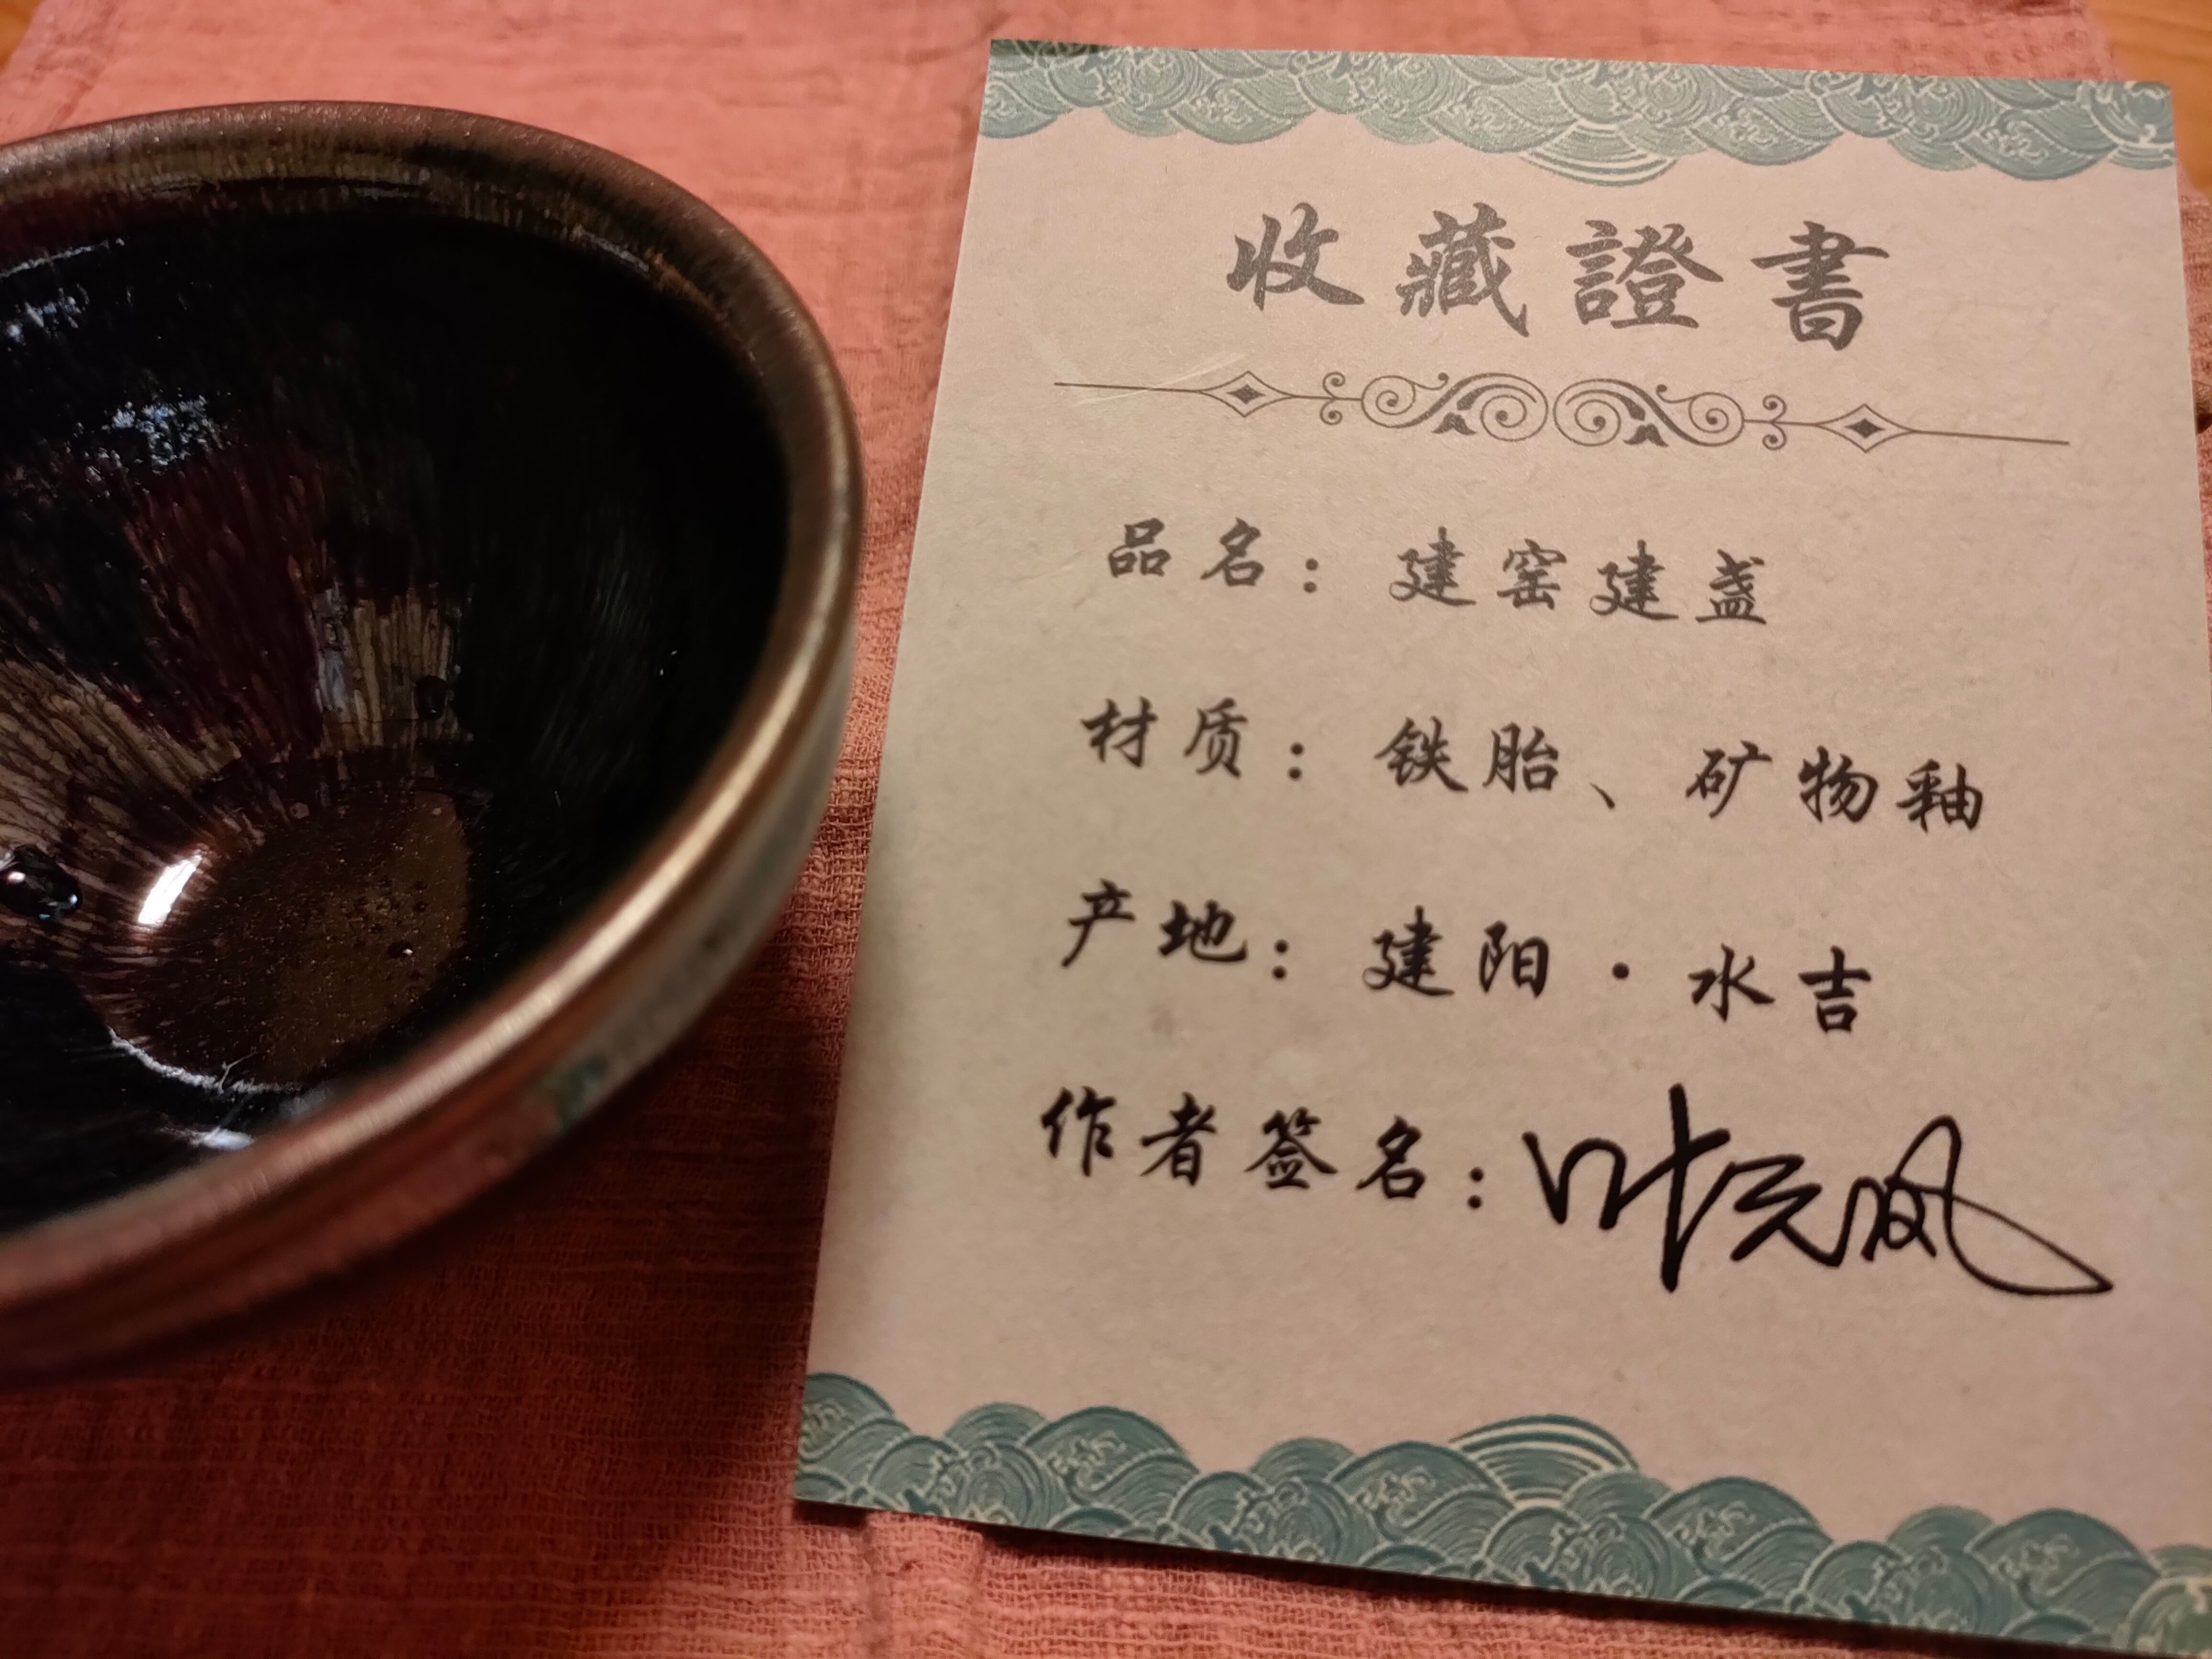 收藏證書
品名：建窑建盏
材质：铁胎、矿物釉
产地：建阳·水吉
作者签名：叶元凤